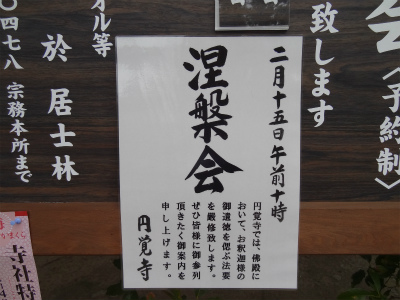 会〈予約制〉
致します
二月十五日午前十時
涅槃会
円覚寺では、佛殿に
おいて、お釈迦様の
御遺徳を偲ぶ法要
を厳修致します。
ぜひ皆様に御参列
頂きたく御案内を
申し上げます。
円覚寺
オル等
於 居士林
〇四七八 宗務本所まで
寺社特